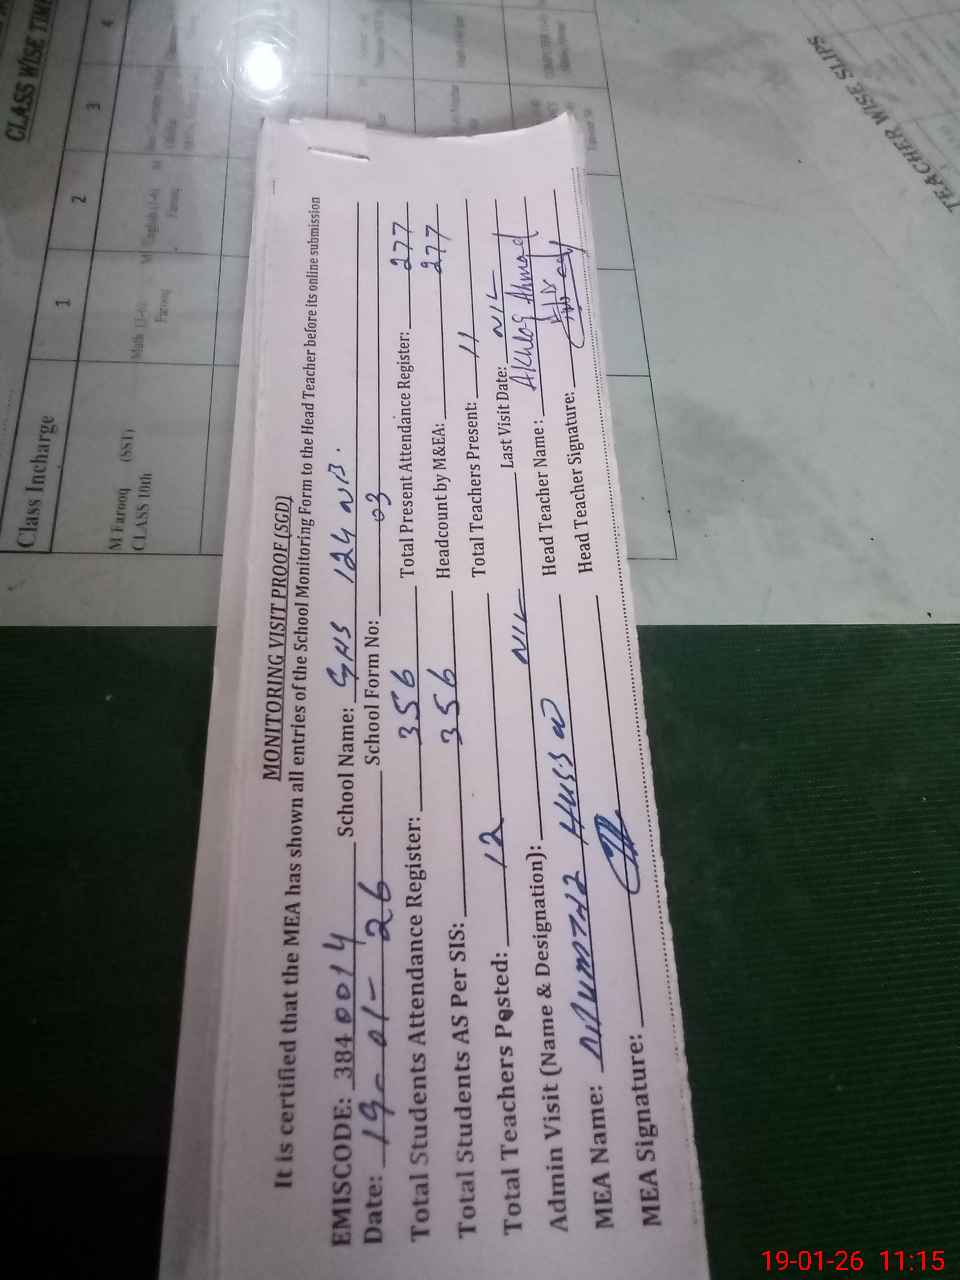 MONITORING VISIT PROOF (SGD)
It is certified that the MEA has shown all entries of the School Monitoring Form to the Head Teacher before its online submission
EMISCODE: 3840014 School Name: GHS 124 NB.
Date: 19-01-26 School Form No: 03
Total Students Attendance Register: 356 Total Present Attendance Register: 277
Total Students AS Per SIS: 356 Headcount by M&EA: 277
Total Teachers Posted: 12 Total Teachers Present: 11
Admin Visit (Name & Designation): NIL Last Visit Date: NIL
MEA Name: Head Teacher Name: Akhlaq Ahmad
MEA Signature: Head Teacher Signature:
CLASS WISE
TEACHER WISE SLIPS
Class Incharge 1 2 3 4
M Farooq (SST)
CLASS 10th
Farooq
19-01-26 11:15